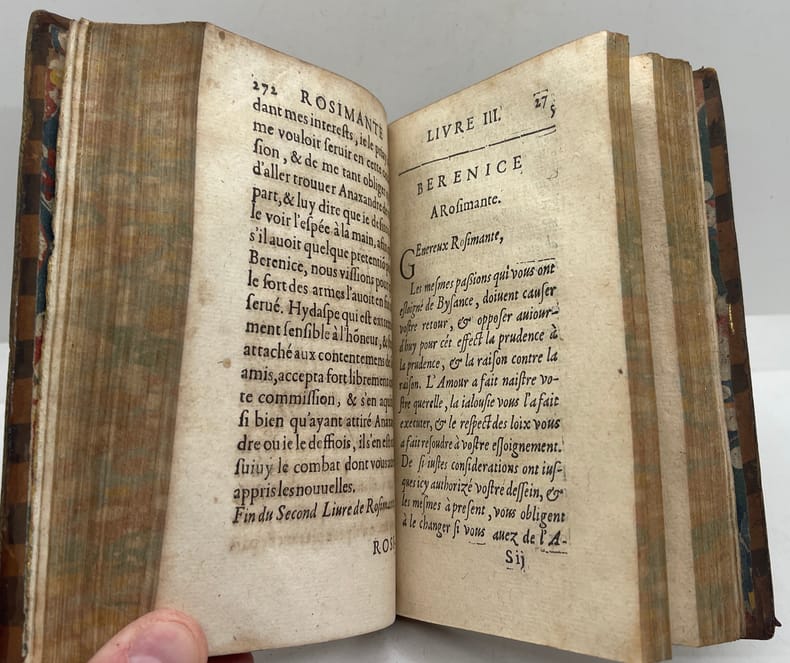 272 ROSIMANTE
dant mes interests, ie le
me vouloir seruir en cette
sion, & de me tant obliger
d'aller trouuer Anaxandre
part, & luy dire que ie
le voir l'espée à la main,
s'il auoit quelque
Berenice, nous vissions
le sort des armes l'auoit en
serué. Hydaspe qui est
ment sensible à l'hōneur, &
attaché aux contentemens
amis, accepta fort librement
te commission, & s'en
si bien qu'ayant attiré
dre ou ie le deffiois, il s'en est
suiuy le combat dont vous
appris les nouuelles.
Fin du Second Liure de
ROS
LIVRE III. 275
BERENICE
A Rosimante.
GEnereux Rosimante,
Les mesmes passions qui vous ont
esloigné de Bysance, doiuent causer
vostre retour, & opposer auiour-
d'huy pour cét effect la prudence à
la prudence, & la raison contre la
raison. L'Amour a fait naistre vo-
stre querelle, la ialousie vous l'a fait
executer, & le respect des loix vous
a fait resoudre à vostre esloignement.
De si iustes considerations ont ius-
ques icy authorizé vostre dessein, &
les mesmes à present, vous obligent
à le changer si vous auez de l'A-
Sij